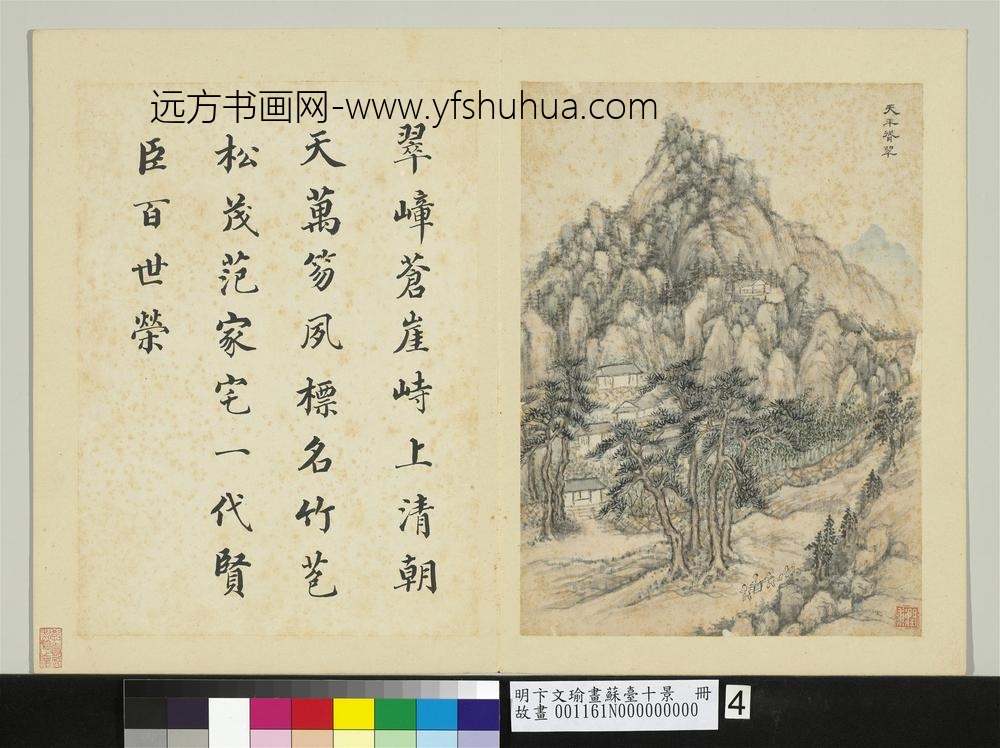 远方书画网-www.yfshuhua.com
天平脊翠
翠嶂蒼崖峙上清朝
天萬笏夙標名竹苞
松茂范家宅一代賢
臣百世榮
明卞文瑜畫蘇臺十景 冊
故畫 001161N000000000
4